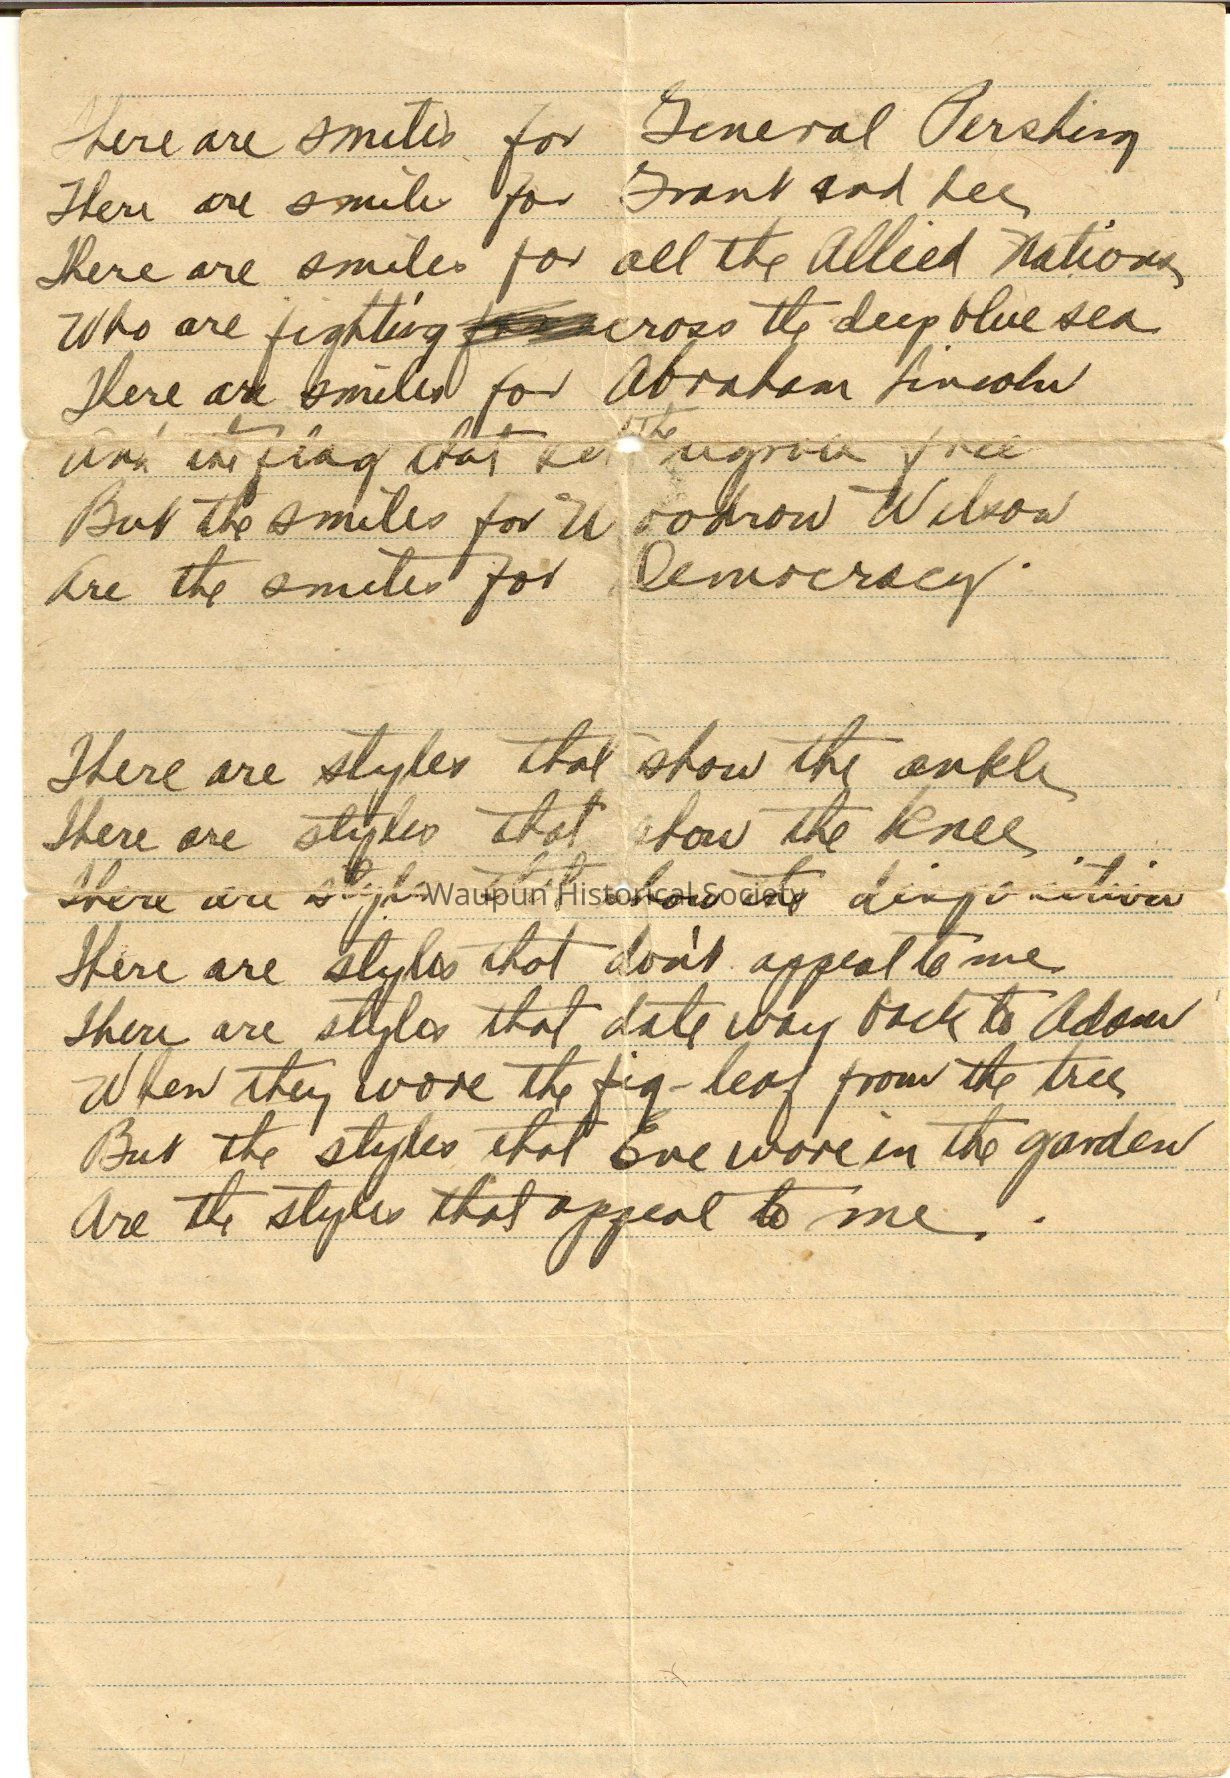 There are smiles for General Pershing
There are smiles for Grant and Lee,
There are smiles for all the Allied Nations,
Who are fighting across the deep blue sea
There are smiles for Abraham Lincoln
And the flag that set the negroes free
But the smiles for Woodrow Wilson
Are the smiles for Democracy.
There are styles that show the ankle,
There are styles that show the knee,
There are styles that show the disposition
There are styles that don't appeal to me.
There are styles that date way back to Adam
When they wore the fig-leaf from the tree,
But the styles that Eve wore in the garden
Are the styles that appeal to me.
Waupun Historical Society